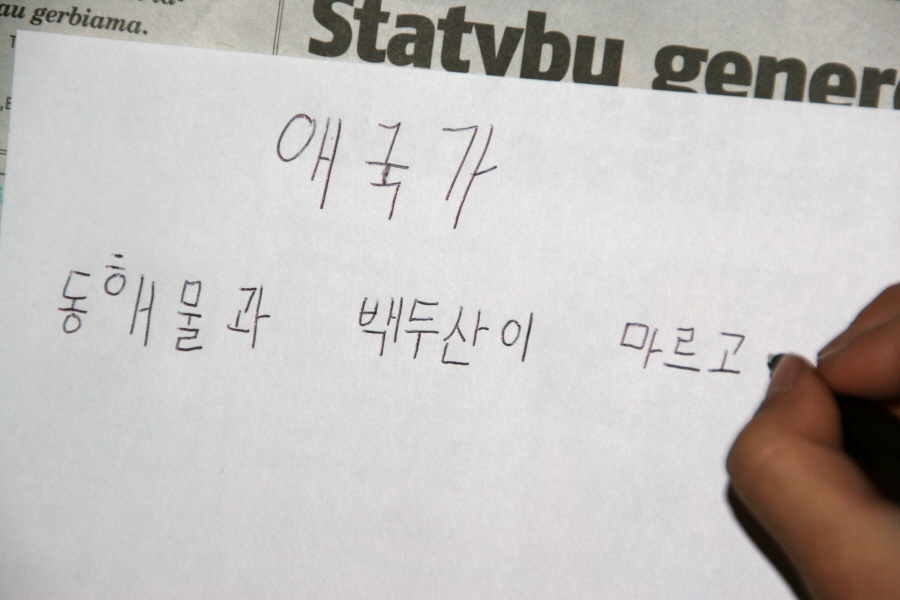 au gerbiama.
Statybu gener
애국가
동해물과 백두산이 마르고